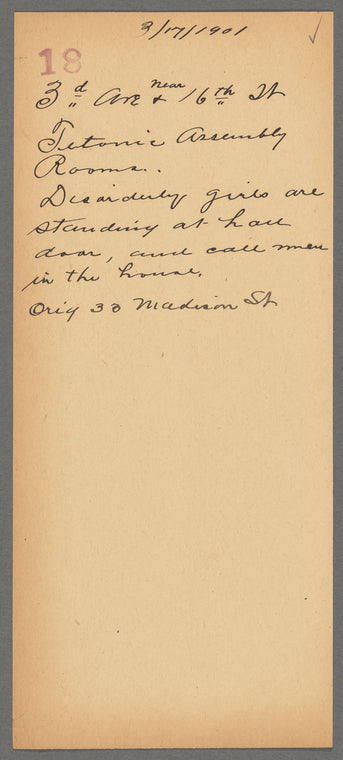 3/17/1901 ✓
18
3d Ave near & 16th St
Tetonic Assembly
Rooms..
Disorderly girls are
standing at hall
door, and call men
in the house.
Orig 33 Madison St